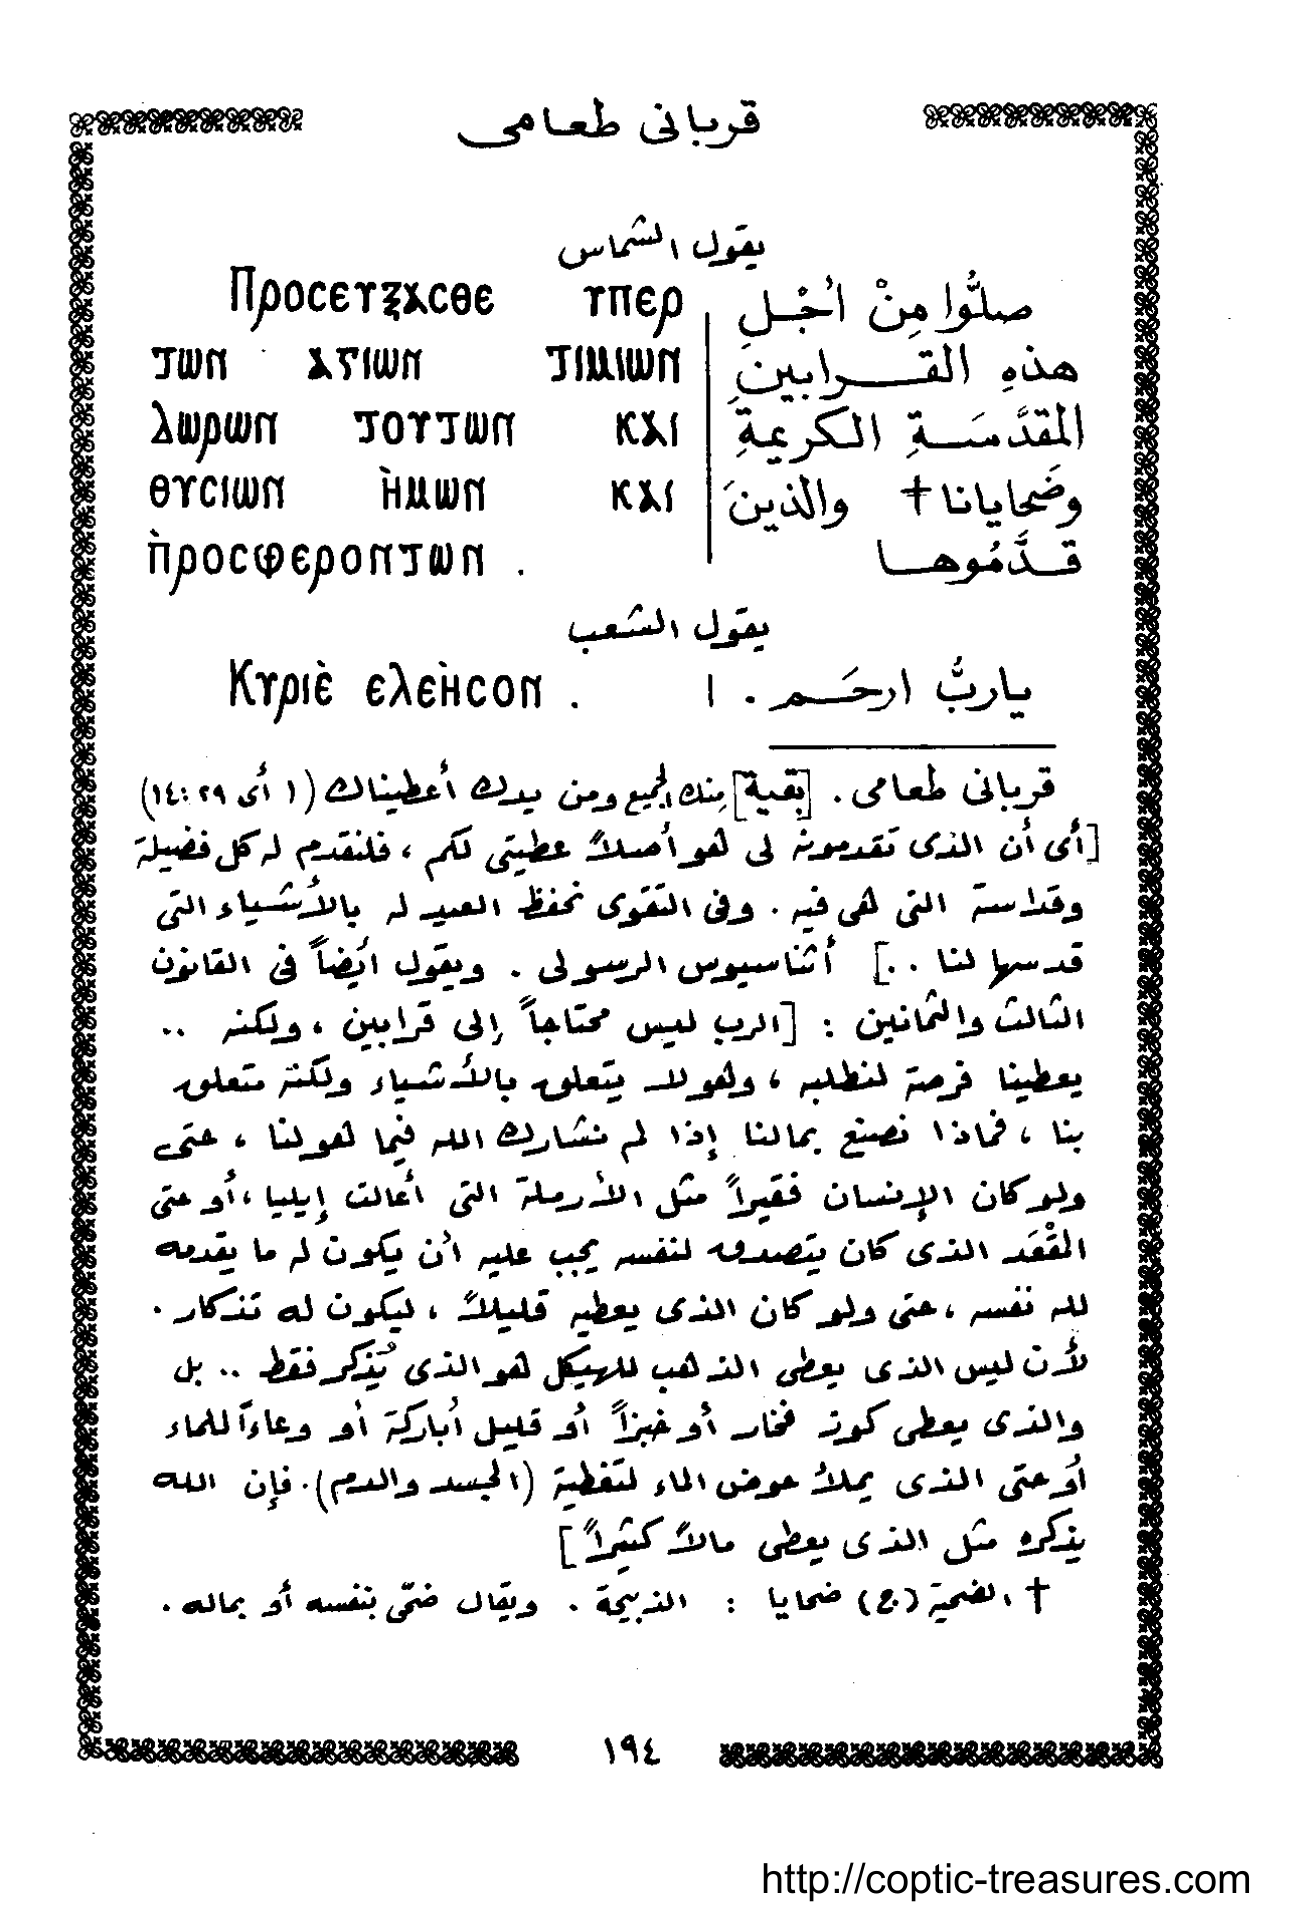 قربانى طعامى
يقول الشماس
صلُّوا مِنْ أجْلِ
هذهِ القرابينِ
المقدَّسَةِ الكريمةِ
وضَحايانا † والذينَ
قدَّمُوها
Ⲡⲣⲟⲥⲉⲩⲝⲁⲥⲑⲉ ⲩⲡⲉⲣ
ⲧⲱⲛ ⲁⲅⲓⲱⲛ ⲧⲓⲙⲓⲱⲛ
ⲇⲱⲣⲱⲛ ⲧⲟⲩⲧⲱⲛ ⲕⲁⲓ
ⲑⲩⲥⲓⲱⲛ ⲏ̀ⲙⲱⲛ ⲕⲁⲓ
ⲡ̀ⲣⲟⲥⲫⲉⲣⲟⲛⲧⲱⲛ .
يقول الشعب
ياربُّ ارحَم .
Ⲕⲩⲣⲓⲉ̀ ⲉⲗⲉⲏ̀ⲥⲟⲛ .
قربانى طعامى . [بقية] منك الجميع ومن يدك أعطيناك (١ أى ٢٩ :١٤)
[أى أن الذى تقدمونه لى هو أصلاً عطيتى لكم ، فلنقدم له كل فضيلة
وقداسة التى هى فيه . وفى التقوى نحفظ العيد له بالأشياء التى
قدسها لنا ..] أثناسيوس الرسولى . ويقول أيضاً فى القانون
الثالث والثمانين : [الرب ليس محتاجاً إلى قرابين ، ولكنه ..
يعطينا فرصة لنطلبه ، وهو لا يتعلق بالأشياء ولكنة متعلق
بنا ، فماذا نصنع بمالنا إذا لم نشارك الله فيما هو لنا ، حتى
ولو كان الإنسان فقيراً مثل الأرملة التى أعالت إيليا ، أو حتى
المقْعَد الذى كان يتصدق لنفسه يجب عليه أن يكون له ما يقدمه
لله نفسه ، حتى ولو كان الذى يعطيه قليلاً ، ليكون له تذكار .
لأن ليس الذى يعطى الذهب للهيكل هو الذى يُذكر فقط .. بل
والذى يعطى كوز فخار أو خبزاً أو قليل أباركة أو وعاءاً للماء
أو حتى الذى يملأ حوض الماء لتغطية (الجسد والدم). فإن الله
يذكره مثل الذى يعطى مالاً كثيراً]
† الضحية (ج) ضحايا : الذبيحة . ويقال ضحّى بنفسه أو بماله .
١٩٤
http://coptic-treasures.com